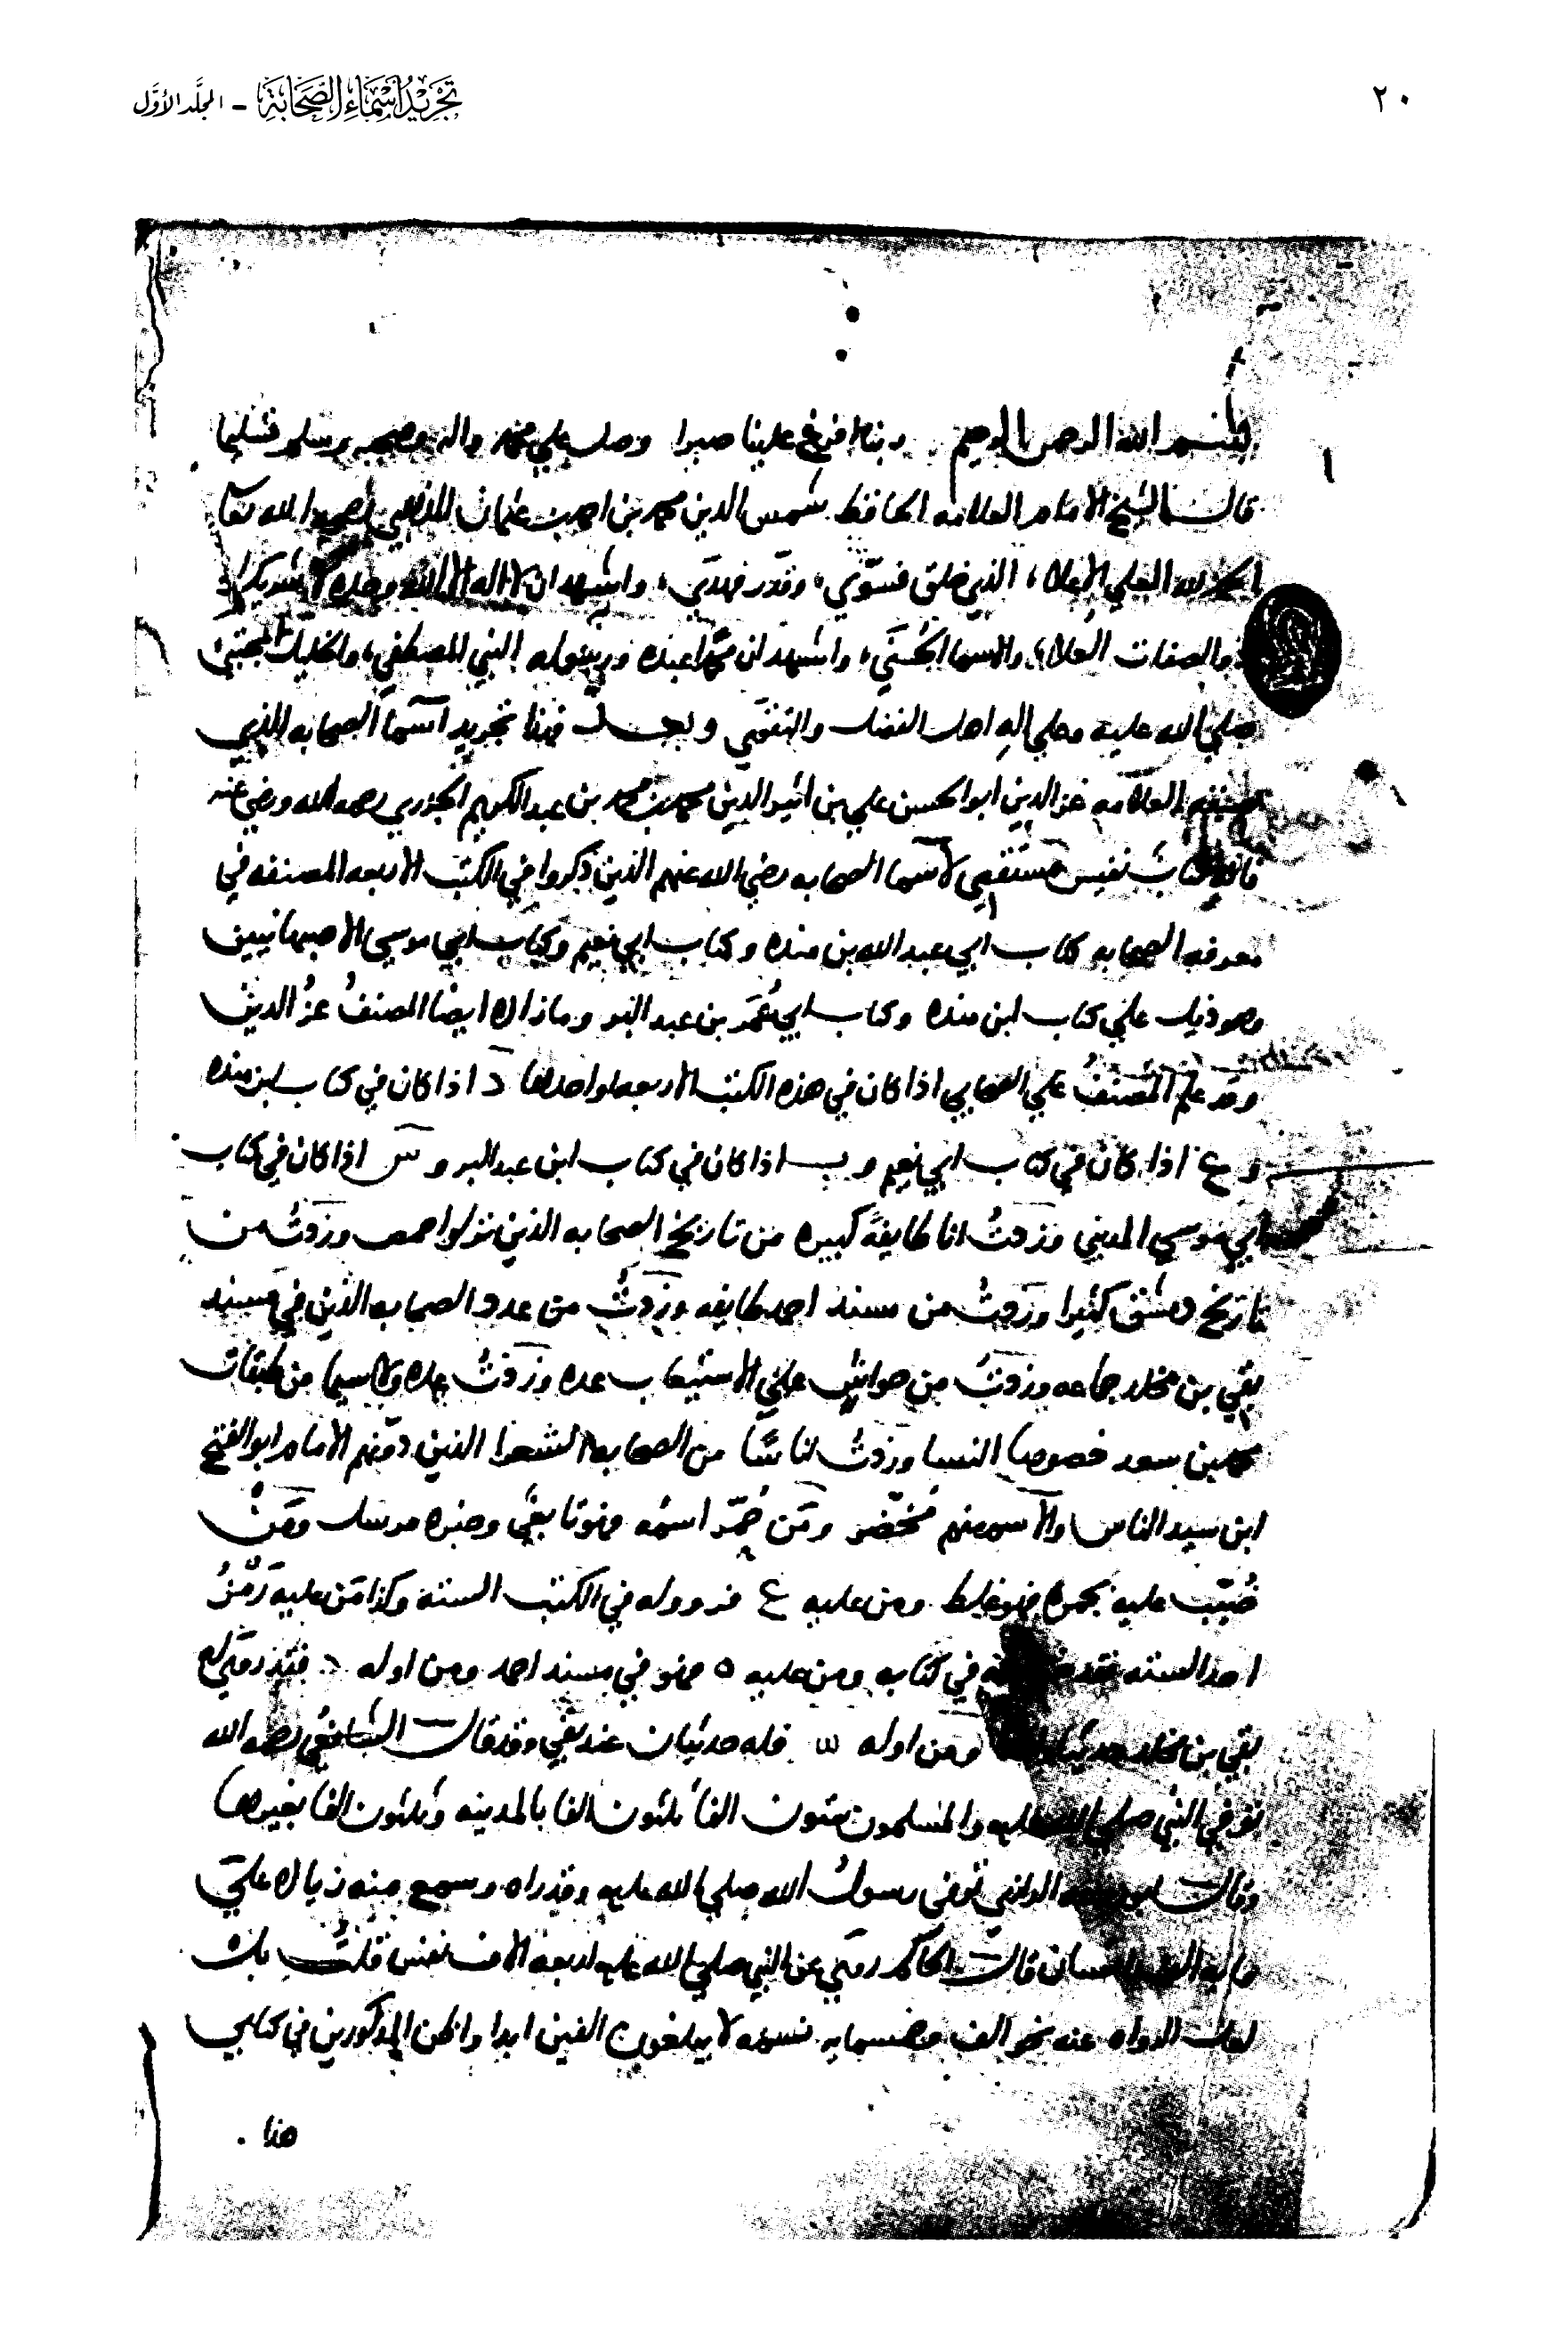 ٢٠
تجريد أسماء الصحابة - المجلد الأول
بسم الله الرحمن الرحيم ربنا افرغ علينا صبرا وصل علي محمد واله وصحبه وسلم تسليما
قال الشيخ الامام العلامه الحافظ شمس الدين محمد بن احمد بن عثمان الذهبي رحمه الله تعالى
الحمد لله العلي الاعلا، الذي خلق فسوّي، وقدّر فهدَي، واشهد ان لا اله الا الله وحده لا شريك له
ذو الصفات العلا، والاسما الحُسنَي، واشهد ان محمدا عبده ورسوله النبي المصطفي، والخليل المجتبَى
صلي الله عليه وعلي اله اهل الفضل والتقَي وبعد فهذا تجريد اسما الصحابه الذي
صنفه العلامه عز الدين ابو الحسن علي بن اثير الدين محمد بن محمد بن عبد الكريم الجزري رحمه الله ورضي عنه
فانه كتاب نفيس مستقصي لاسما الصحابه رضي الله عنهم الذين ذكروا في الكتب الاربعه المصنفه في
معرفه الصحابه كتاب ابي عبد الله بن منده وكتاب ابي نعيم وكتاب ابي موسي الاصبهانيين
وهو ذيل علي كتاب ابن منده وكتاب ابي عُمَر بن عبد البر وما زاده ايضا المصنفُ عزُ الدين
وقد علم المصنفُ علي الصحابي اذا كان في هذه الكتب الاربعه او احدها د اذا كان في كتاب ابن منده
و ع اذا كان في كتاب ابي نعيم و ب اذا كان في كتاب ابن عبد البر و س اذا كان في كتاب
ابي موسي المديني وزدتُ انا طايفةً كبيره من تاريخ الصحابه الذين نزلوا حمص وزدتُ من
تاريخ دمشق كثيرا وزدتُ من مسند احمد طايفه وزدتُ من عدد الصحابه الذين في مسند
بقي بن مخلد جماعه وزدتُ من حواشٍ علي الاستيعاب عده وزدتُ عده ولا سيما من طبقات
محمد بن سعد خصوصا النسا وزدتُ اناسًا من الصحابه الشعرا الذين دوّنهم الامام ابو الفتح
ابن سيد الناس والا سمعنهم مُحَضّر ومَن حُمّر اسمُه فهو تابعيٌ وخبره مرسل ومَن
ضُبّب عليه بحمره فهو غلط ومن عليه ع فحديثه في الكتب السته وكذا مَن عليه رَمْزُ
احد السته فقد في كتابه ومن عليه ه فهو في مسند احمد ومن اوله د فقد روَي له
بقي بن مخلد حديثا ومن اوله س فله حديثان عند بقي وقد قال الشافعي رحمه الله
توفي النبي صلي الله عليه والمسلمون ستون الفا ثلثون الفا بالمدينه وثلثون الفا بغيرها
وقال ابو زرعه الرازي توفى رسولُ الله صلي الله عليه وقد راه وسمع منه زياده علَي
مايه الف انسان قال الحاكم روَي عن النبي صلي الله عليه اربعه الاف نفس قلتُ بل
لعل الرواه عنه نحو الف وخمسمايه نسمه لا يبلغون الفين ابدا واظن المذكورين في كتابي
هذا